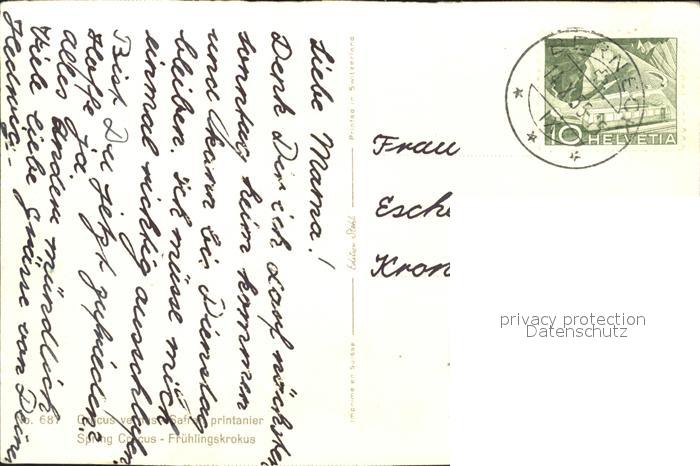 Liebe Mama!
Denk Dir ich darf nächsten
Sonntag heim kommen
und kann bis Dienstag
bleiben. Ich müsse mich
einmal richtig ausschlafen.
Bist Du jetzt zufrieden?
Hoffe ja.
Alles andere mündlich
Viele liebe Grüsse von Deiner
Printed in Switzerland
Imprimé en Suisse
No. 687
Crocus printanier
Spring Crocus - Frühlingskrokus
Frau
Esche
Kron
BERNECK
10 HELVETIA
privacy protection
Datenschutz